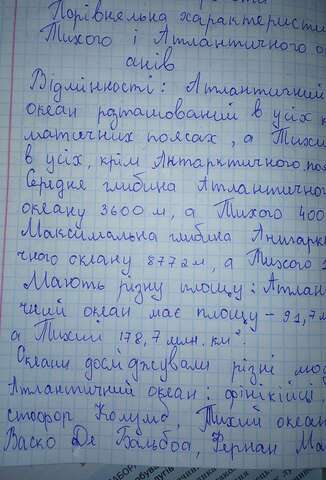 Порівняльна характеристи
Тихого і Атлантичного о
анів
Відмінності: Атлантичний
океан розташований в усіх к
матичних поясах, а Тихи
в усіх, крім Антарктичного поя
Середня глибина Атлантичног
океану 3600 м, а Тихого 400
Максимальна глибина Антарк
чного океану 8772м, а Тихого 1
Мають різну площу: Атлан
чий океан має площу - 91,7м
а Тихий 178,7 млн. км².
Океани досліджували різні мо
Атлантичний океан: фінікійці
стофор Колумб, Тихий океан
Васко Де Бальбоа, Фернан Ма